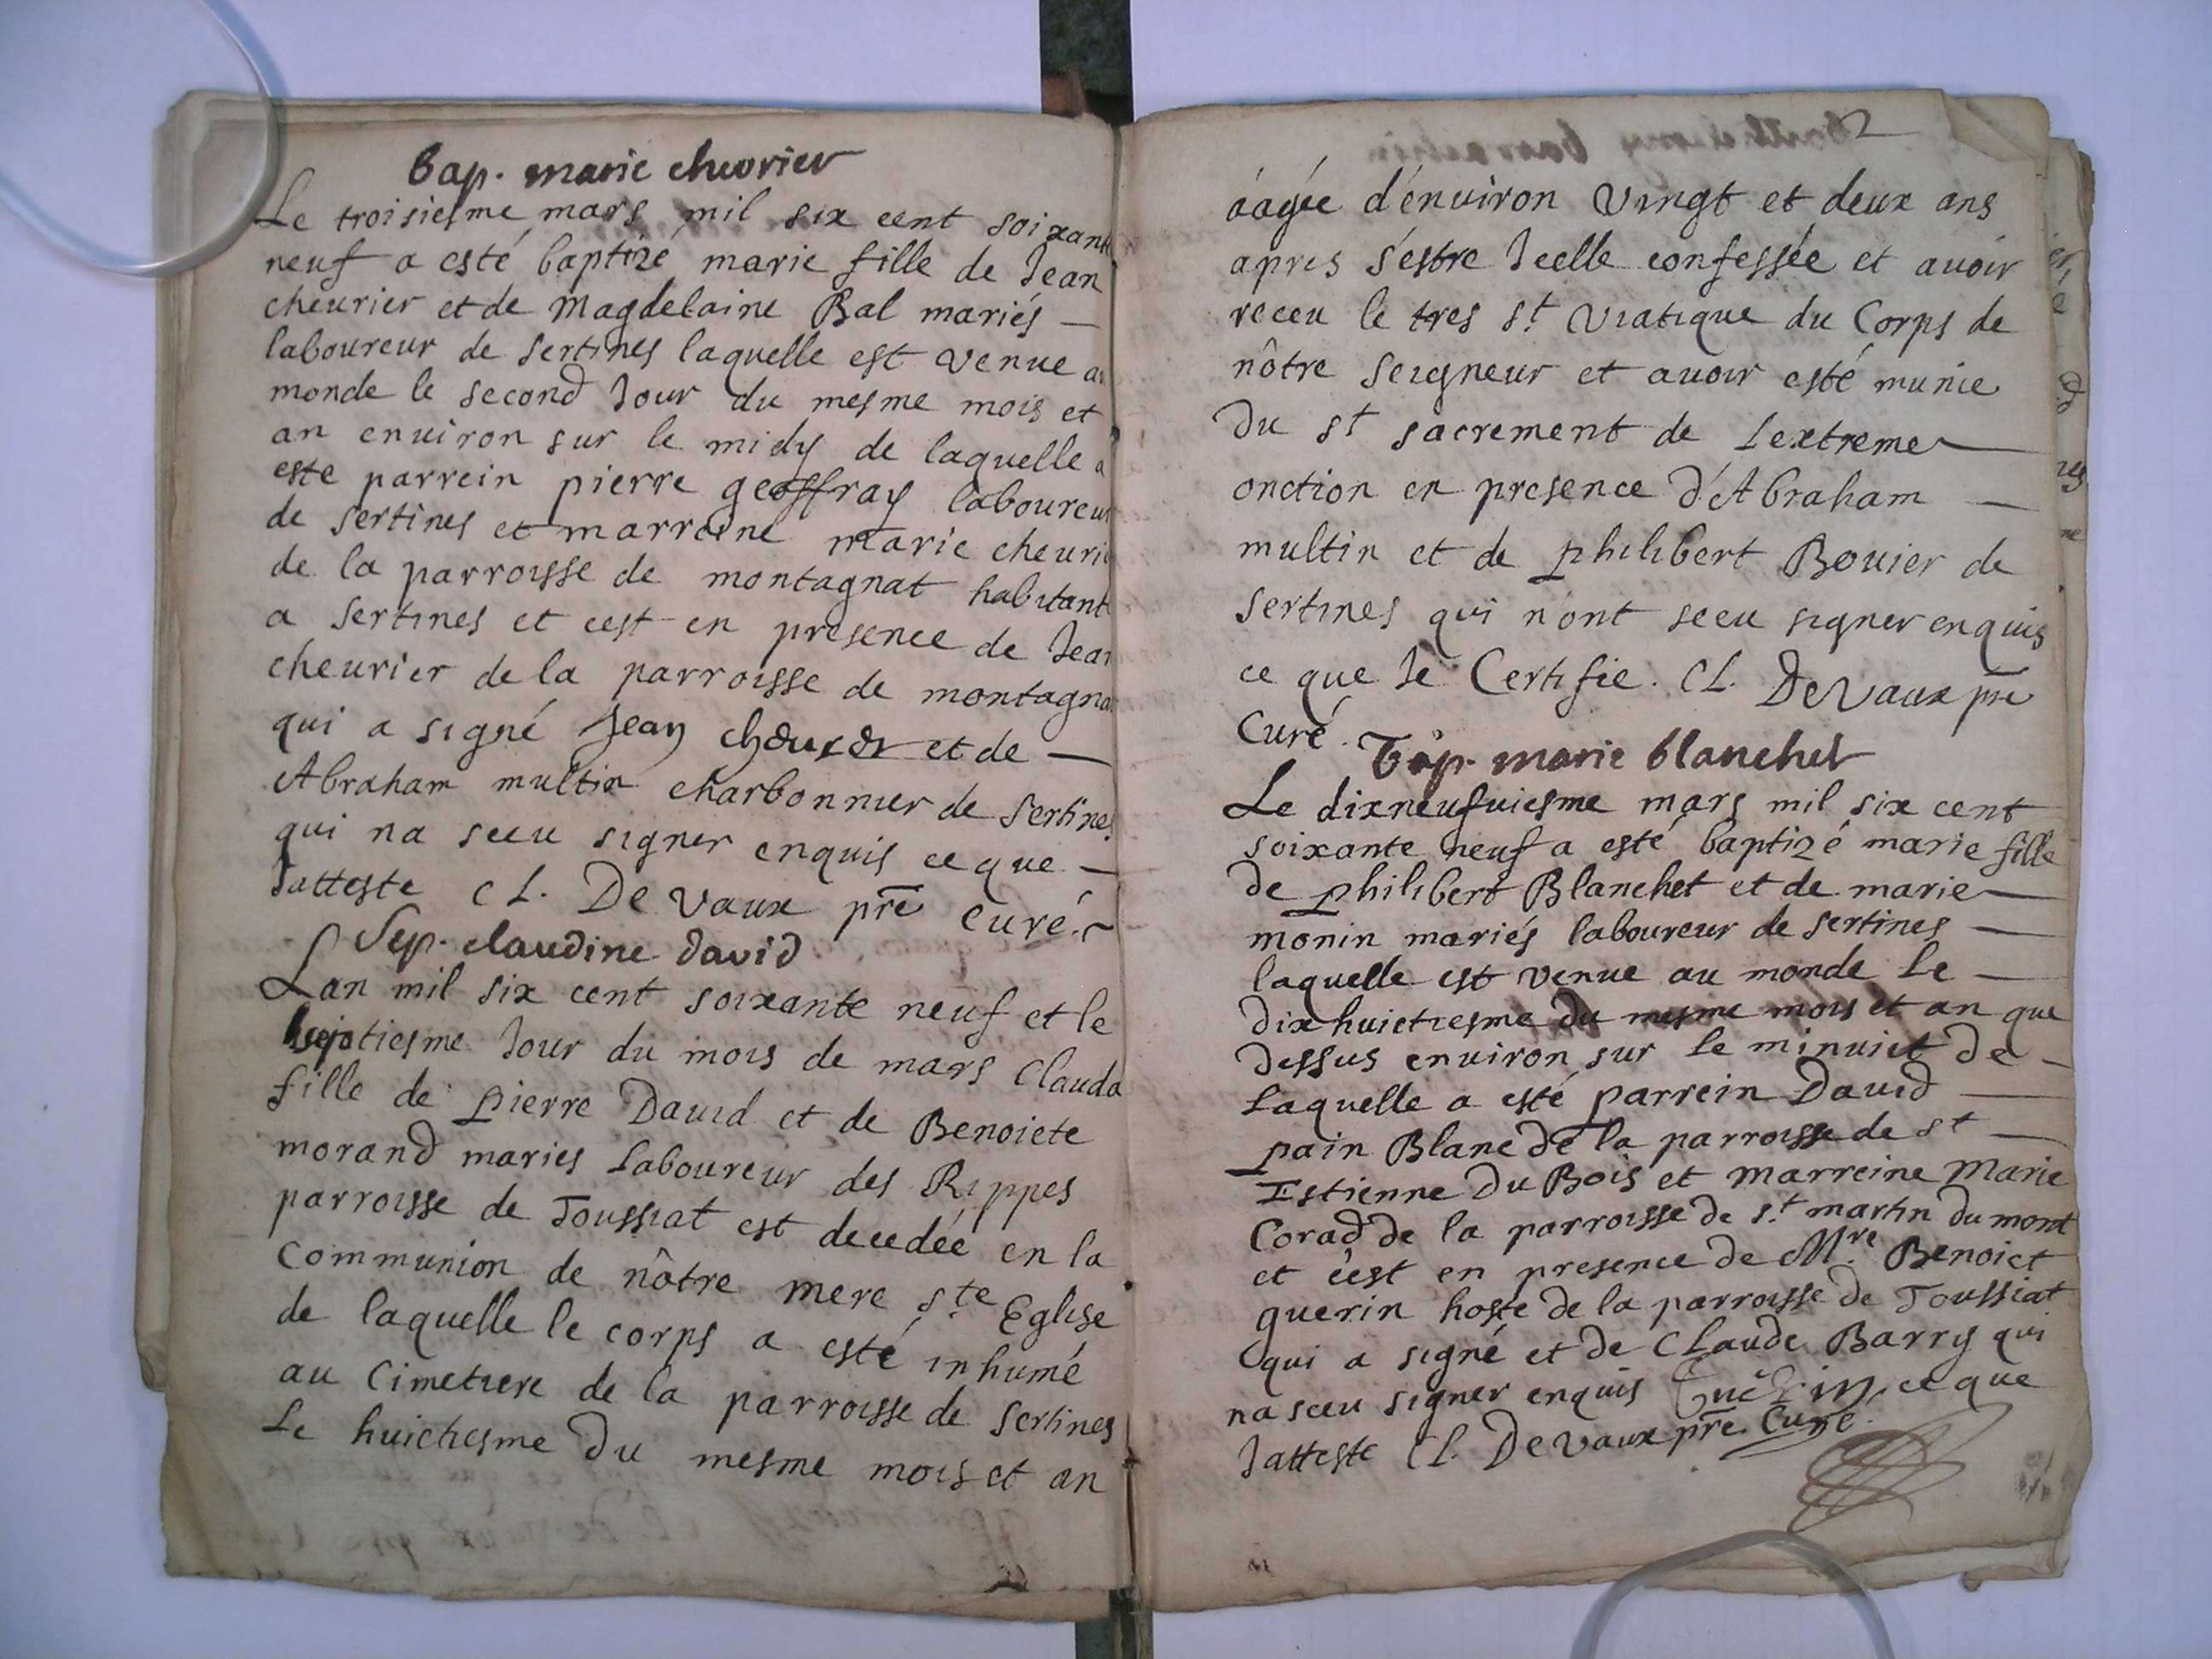 bap. marie chevrier
Le troisiesme mars mil six cent soixante
neuf a esté baptizé marie fille de Jean
cheurier et de Magdelaine Bal mariés —
laboureur de sertines laquelle est venue au
monde le second Jour du mesme mois et
an enuiron sur le midy de laquelle a
esté parrein pierre geoffray laboureur
de sertines et marreine marie cheurier
de la parroisse de montagnat habitante
a sertines et cest en presence de Jean
cheurier de la parroisse de montagnat
qui a signé Jean cheurier et de —
Abraham multin charbonnier de sertines
qui na sceu signer enquis ce que —
Jatteste CL. De Vaux pre curé.
Sep. claudine david
Lan mil six cent soixante neuf et le
septiesme Jour du mois de mars Clauda
fille de pierre Dauid et de Benoicte
morand mariés Laboureur des Rippes
parroisse de Toussiat est decedée en la
Communion de nôtre mere ste Eglise
de laquelle le corps a esté inhumé
au Cimetiere de la parroisse de sertines
Le huictiesme du mesme mois et an
2
áagée d'énuiron vingt et deux ans
apres s'éstre Icelle confessée et auoir
receu le tres st. Viatique du Corps de
nôtre seigneur et auoir esté munie
du st sacrement de Lextreme —
onction en presence d'Abraham —
multin et de philibert Bouier de
sertines qui n'ont sceu signer enquis
ce que Je Certifie. CL. De Vaux pre
Curé.
bap. marie blanchet
Le dixneufuiesme mars mil six cent
soixante neuf a esté baptizé marie fille
de philibert Blanchet et de marie —
monin mariés laboureur de sertines —
laquelle est venue au monde Le —
dixhuictiesme du mesme mois et an que
dessus enuiron sur le minuict de —
Laquelle a esté parrein Dauid —
pain Blanc de la parroisse de st —
Estienne Du Bois et marreine Marie
Corad de la parroisse de st. martin du mont
et c'est en presence de Mre. Benoict
guerin hoste de la parroisse de Toussiat
qui a signé et de CLaude Barry qui
na sceu signer enquis Guérin ce que
Jatteste CL. De Vaux pre. Curé.